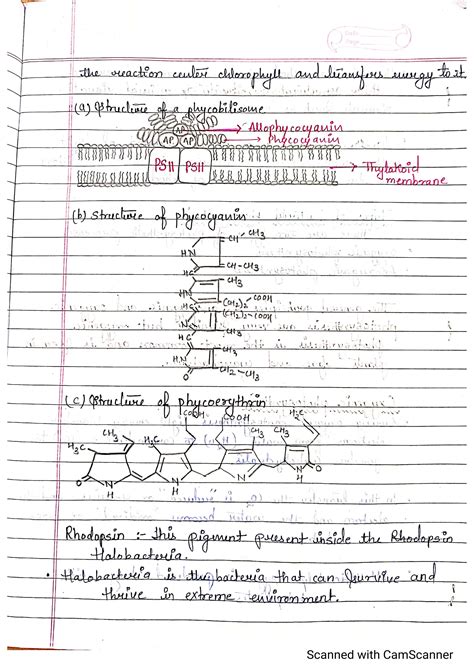 Date
Page
the reaction center chlorophyll and transfers energy to it
(a) Structure of a phycobilisome
Allophycocyanin
AP
AP AP
Phycocyanin
PSII PSII
Thylakoid
membrane
(b) Structure of phycocyanin
CH CH3
HN
CH-CH3
HC
CH3
HN
(CH2)2 COOH
HC
(CH2)2-COOH
N
CH3
HC
CH3
HN
CH2-CH3
O
(c) Structure of phycoerythrin
COOH COOH H2C
CH3 H3C CH3 CH3
H3C
O N H N H N N H O
Rhodopsin :- this pigment present inside the Rhodopsin
Halobacteria.
• Halobacteria is the bacteria that can survive and
thrive in extreme environment.
Scanned with CamScanner